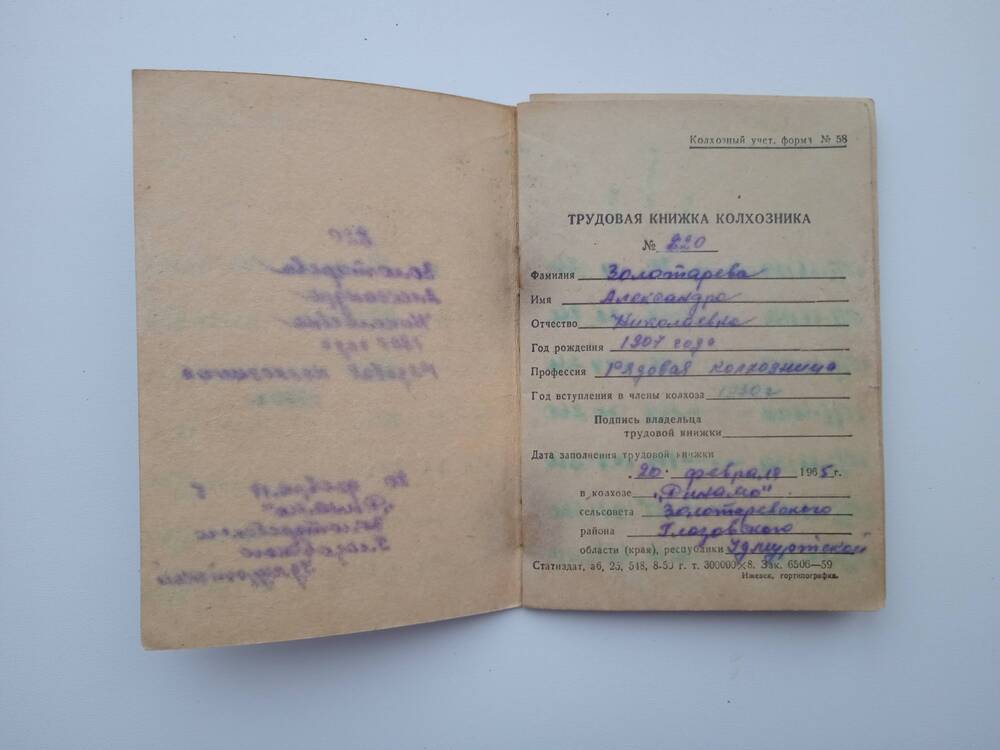 Колхозный учет. форма № 58
ТРУДОВАЯ КНИЖКА КОЛХОЗНИКА
№ 220
Фамилия Золотарева
Имя Александра
Отчество Николаевна
Год рождения 1907 года
Профессия Рядовая колхозница
Год вступления в члены колхоза 1930 г
Подпись владельца
трудовой книжки
Дата заполнения трудовой книжки
20 февраля 1965 г.
в колхозе „Динамо"
сельсовета Золотаревского
района Глазовского
области (края), республики Удмуртской
Статиздат, аб, 25, 548, 8-59 г. т. 300000 Зак. 6506—59
Ижевск, гортипография.